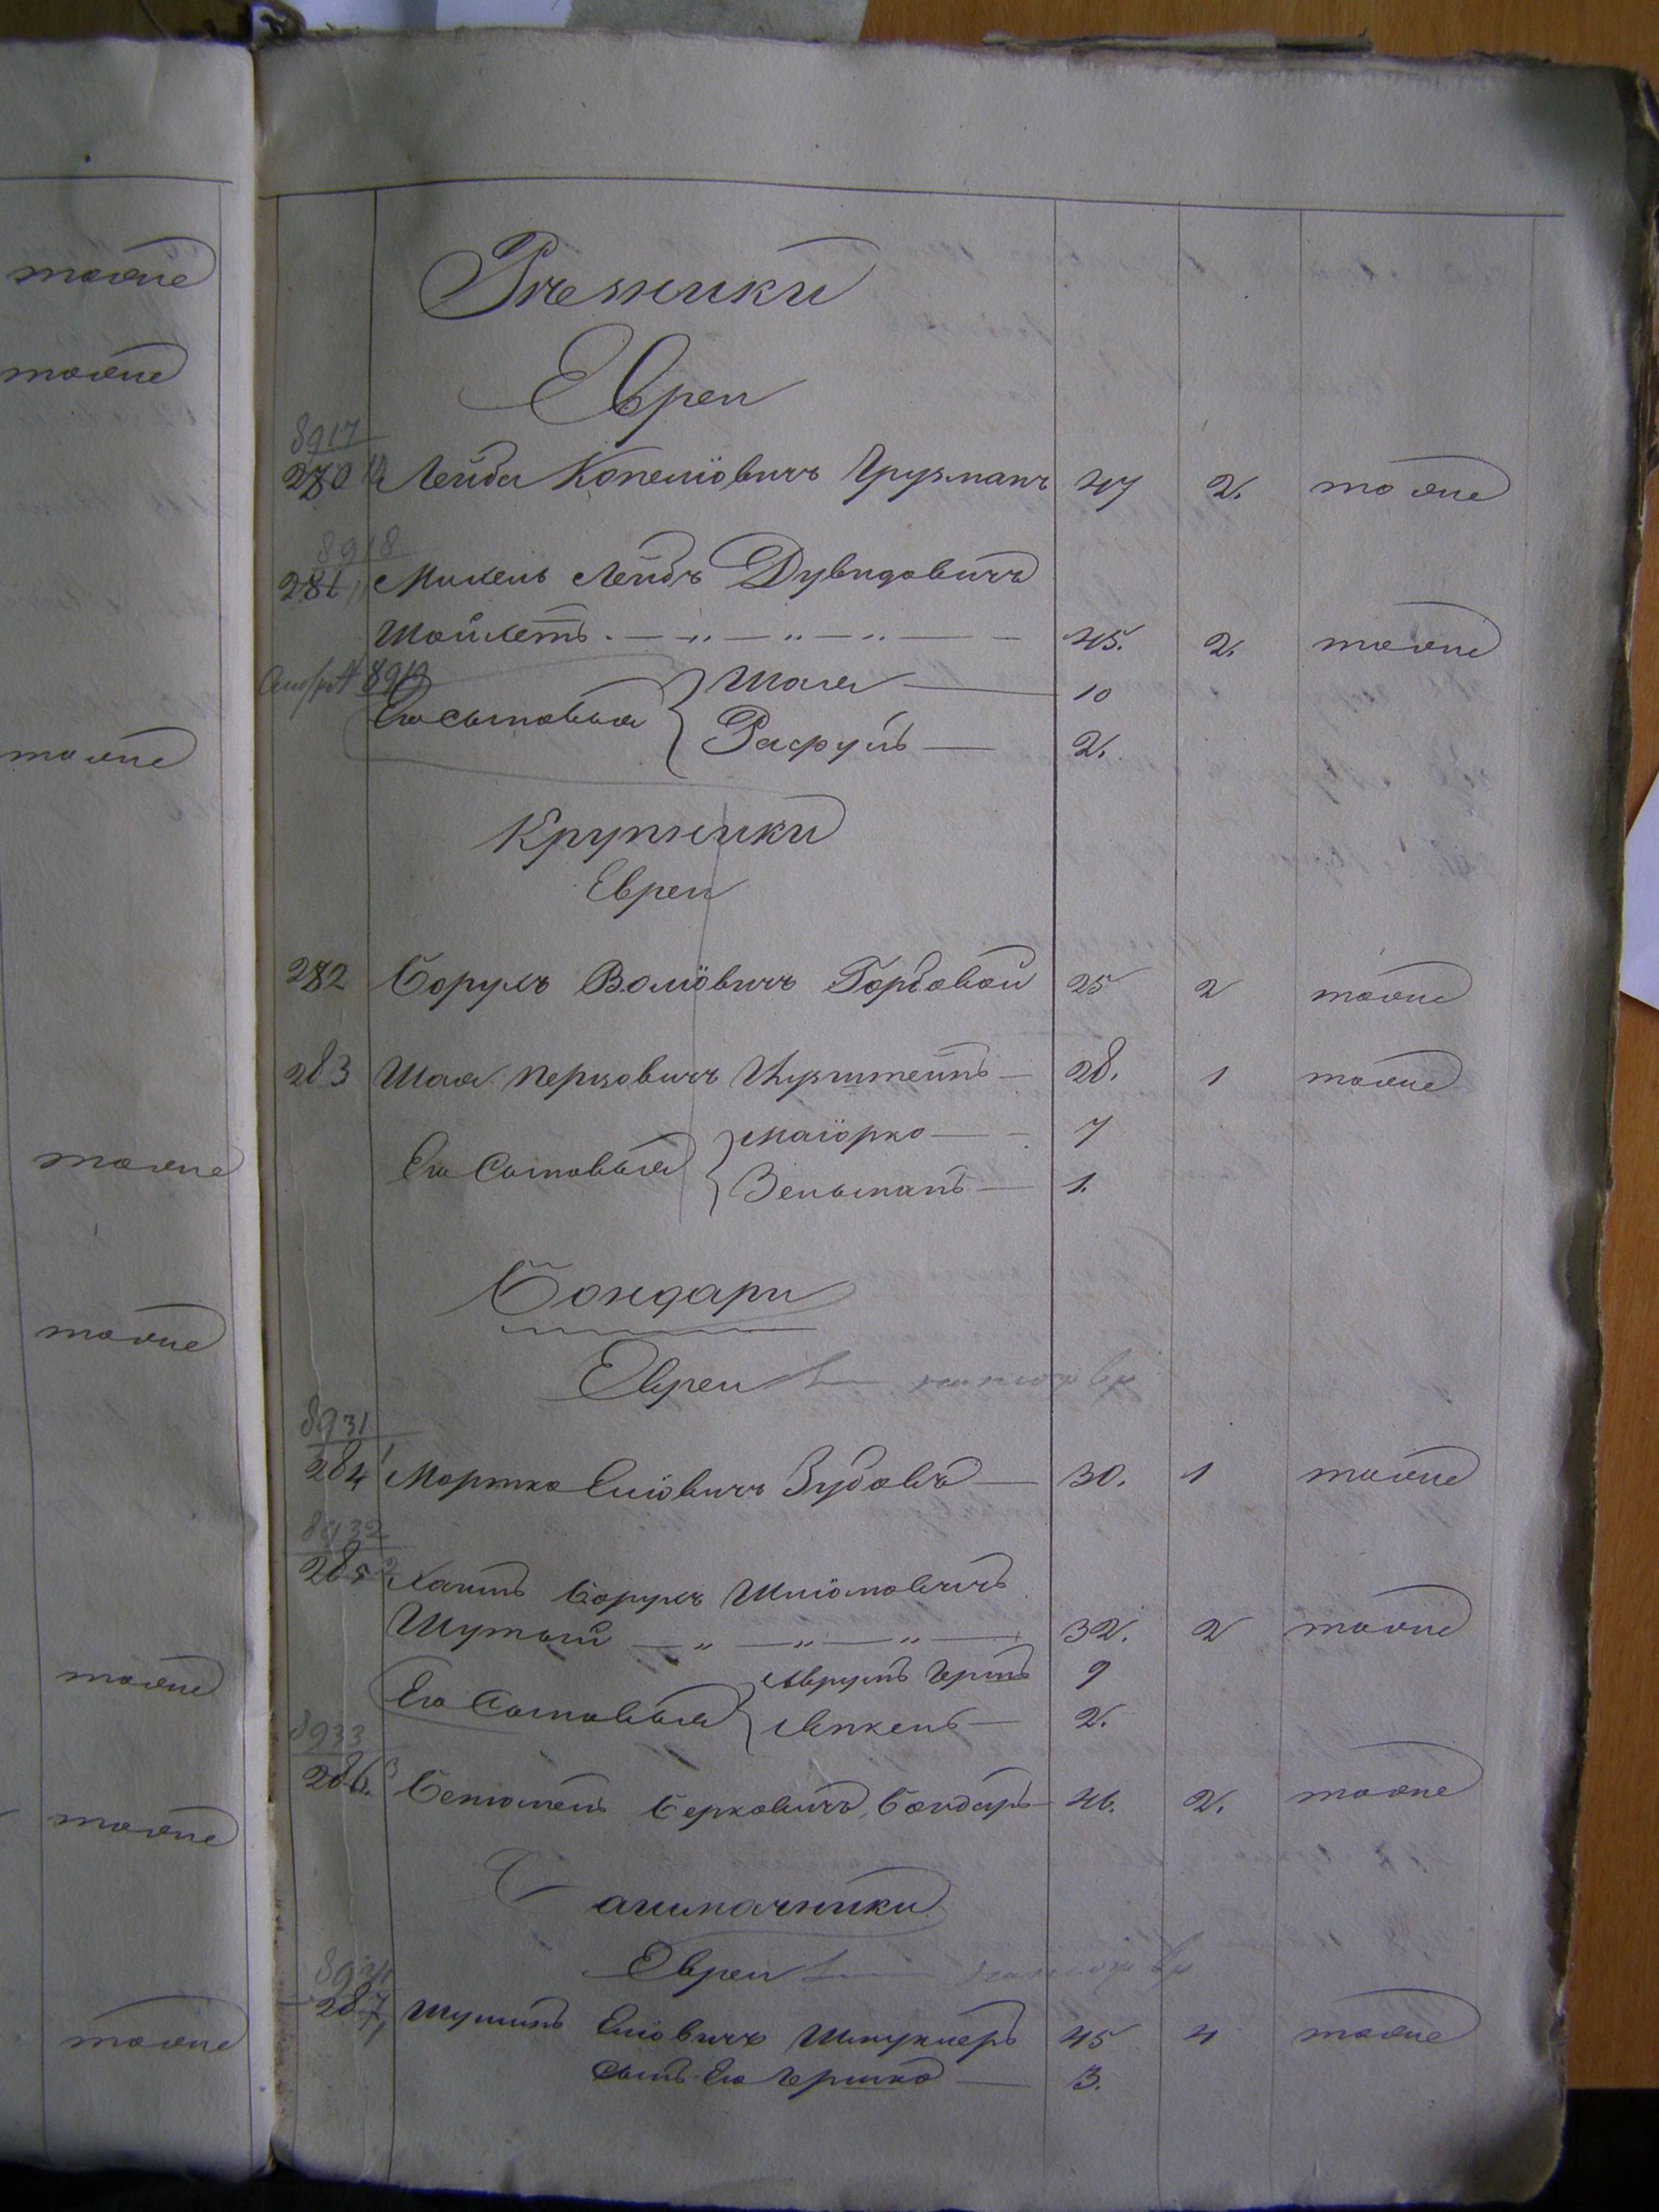 тоже
тоже
тоже
тоже
тоже
тоже
тоже
тоже
Резники
Евреи
8917
280 Лейба Копелiовичъ Грузманъ 47 2. тоже
8918
281 Михель Лейбъ Дувидовичъ
Шойхетъ. — „ — „ — „ — 45. 2. тоже
8919
Его сыновья { Шая — 10
Рафуилъ — 2.
Крупники
Евреи
282 Борухъ Волiовичъ Горбовой 25 2 тоже
283 Шая Перцовичъ 28. 1 тоже
Его Сыновья { Маiорко — 7
Зельманъ — 1.
Бондари
Евреи
8931
284 Мортко Елiовичъ Зубовъ — 30. 1 тоже
8932
285 Хаимъ Борухъ Шлiомовичъ
Шутый — „ — „ — „ — 32. 2 тоже
Его Сыновья { Аврумъ Гершъ 9
— 2.
8933
286. Берковичъ Бондарь — 46. 2. тоже
Башмачники
Евреи
8934
287 Елiовичъ Шмуклеръ 45 4 тоже
Сынъ Его Гершко — 3.